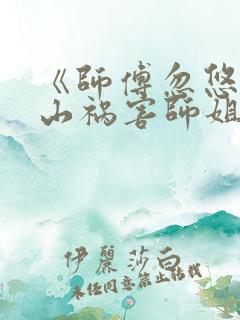 《師傅忽悠
山祸害師姐
伊麗莎白
未经同意禁止转载